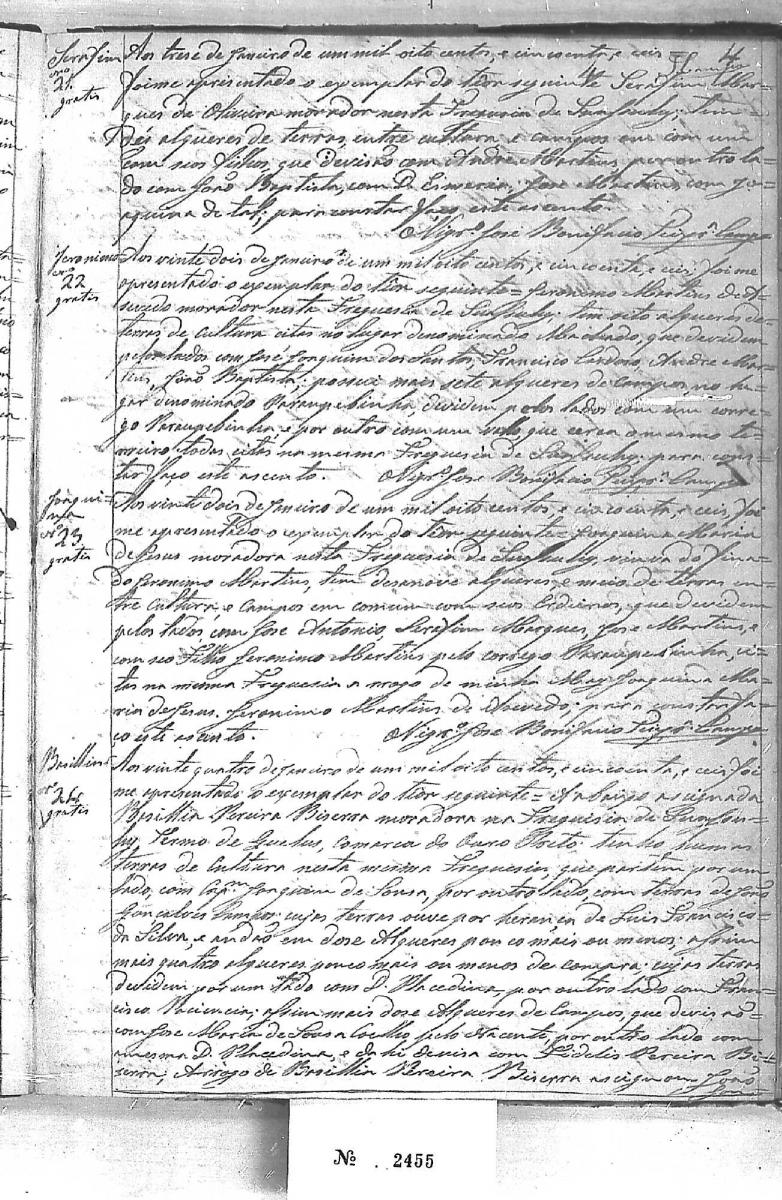 4
Serafim
nº 21
gratis
Aos trese de Janeiro de um mil oito centos, e cincoenta, e ceis
foi me apresentado o exemplar do tior seguinte Serafim Mar-
ques de Oliveira morador nesta Freguesia de Suassuhy; tem
des alqueres de terras, entre cultura e campos em com um
com seos Filhos, que devisão com Andre Martins, por outro la-
do com João Baptista, com D. Esmeria, Jose Martins, com Jo-
aquina de tal; para constar faço este ascento.
O Vigrº Jose Bonifacio
Jeronimo
nº 22
gratis
Aos vinte dois de Janeiro de um mil oito centos, e cincoenta, e ceis, foi me
apresentado o exemplar do tior seguinte = Jeronimo Martins de A-
sevedo morador nesta Freguesia de Suassuhy: tem oito alqueres de
terras de cultura citas no lugar denominado Machado, que devidem
pelos lados com Jose Joaquim dos Santos, Francisco Cardoso, Andre Mar-
tins, João Baptista: possui mais sete alqueres de campos no lu-
gar denominado Paraupebinha, dividem pelos lados com um corre-
go Paraupebinha, e por outro com um valo que cerca o mesmo te-
rreiro todas citas na mesma Freguesia de Suassuhy: para cons-
tar faço este ascento. O Vigrº Jose Bonifacio
Joaqui-
na
nº 23
gratis
Aos vinte dois de Janeiro de um mil oito centos, e cincoenta, e ceis, foi
me apresentado o exemplar do tior seguente = Joaquina Maria
de Jesus moradora nesta Freguesia de Suassuhy, viuva do fina-
do Jeronimo Martins, tem desanove alqueres e meio de terras en-
tre cultura, e campos em comum com seus Erdeiros, que devidem
pelos lados, com Jose Antonio, Serafim Marques, Jose Martins, e
com seo Filho Jeronimo Martins pelo corrego Paraupebinha, ci-
tas na mesma Freguesia a rogo de minha May Joaquina Ma-
ria de Jesus. Jeronimo Martins de Asevedo; para constar fa-
ço este ascento. O Vigrº Jose Bonifacio
Basillia
nº 24
gratis
Aos vinte quatro de Janeiro de um mil oito centos, e cincoenta, e ceis foi
me apresentado o exemplar do tior seguinte = A abaixo asignada
Basillia Pereira Biserra moradora na Freguesia de Suassu-
hy, Termo de Quelus, Comarca do Ouro Preto: tenho, humas
terras de Cultura nesta mesma Freguesia, que partem por um
lado, com Capm Joaquim de Sousa, por outro lado, com terras de João
Gonçalves cujas terras ouve por herança de Luis Francisco
da Silva, e andão em dose Alqueres pouco mais ou menos; assim
mais quatro alqueres pouco mais ou menos de compra; cujas terras
devidem por um lado com D. Placedina, por outro lado com Fran-
cisco assim mais dose Alqueres de Campos, que devisão
com Jose Maria de Sousa Coelho pelo Nacente, por outro lado com
a mesma D. Placedina, e dahi devisa com Fidelis Pereira Bi-
serra; Arrogo de Basillia Pereira Biserra asignou João
Nº 2455